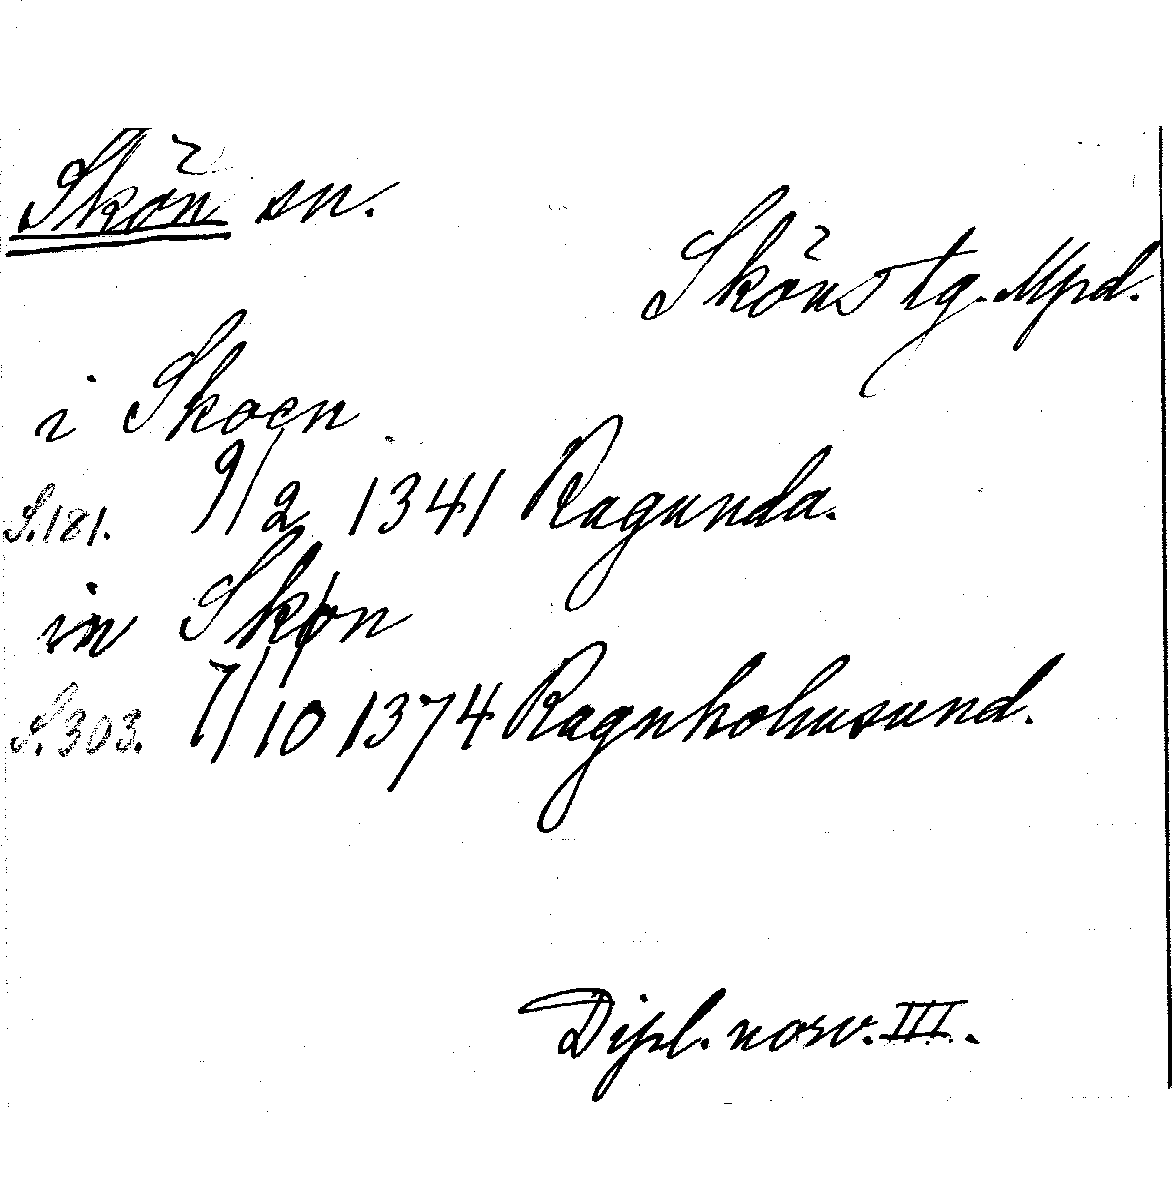 Skön sn.
Sköns tg. Mpd.
i Skoen
S. 181. 9/2 1341 Ragunda.
in Skøn
S. 303. 7/10 1374 Ragnholmsund.
Dipl. norv. III.